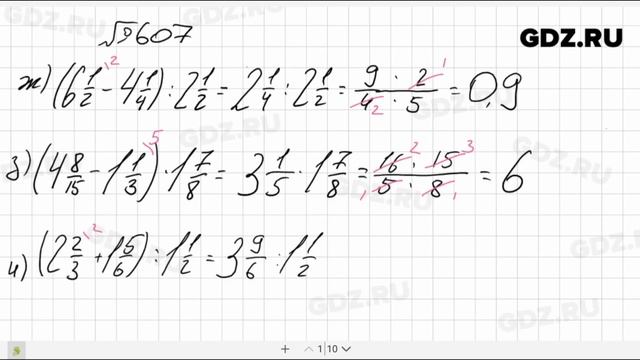 GDZ.RU
№607
ж) (6 1/2 - 4 1/4) : 2 1/2 = 2 1/4 : 2 1/2 = 9 · 2 / 4 · 5 = 0,9
з) (4 8/15 - 1 1/3) · 1 7/8 = 3 1/5 · 1 7/8 = 16 · 15 / 5 · 8 = 6
и) (2 2/3 + 1 5/6) : 1 1/2 = 3 9/6 : 1 1/2
1 10